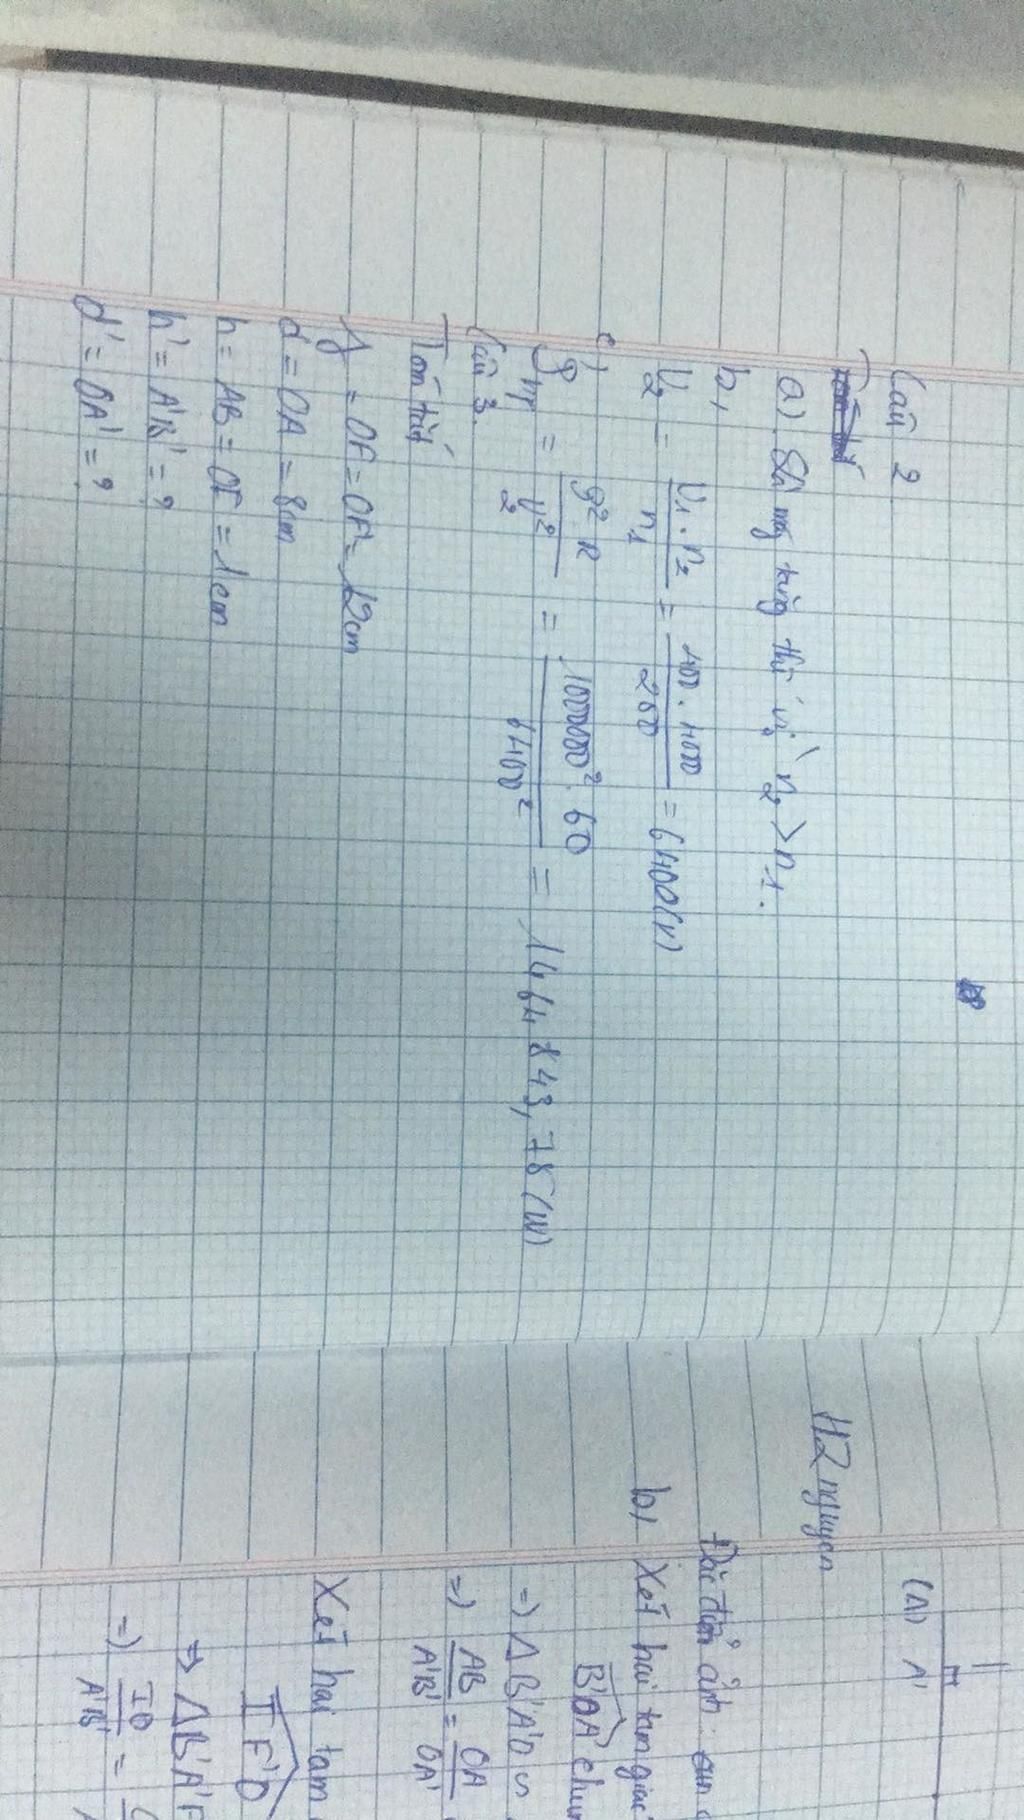 Câu 2
a) Số máy tăng thế vì n₂ > n₁.
b,
U₂ = U₁.n₂ / n₁ = 400.4000 / 250 = 6400(V)
c)
P_hp = P².R / U₂² = 1000000².60 / 6400² = 1464843,75(W)
Câu 3.
Tóm tắt
f = OF = OF' = 12cm
d = OA = 8cm
h = AB = OI = 1cm
h' = A'B' = ?
d' = OA' = ?
(Δ) A'
Đặc điểm ảnh:
b, Xét hai tam giác
B'OA' chung
=> ΔB'A'O ∽
=> AB / A'B' = OA / OA'
Xét hai tam
IF'O
=> ΔB'A'F
=> IO / A'B' =